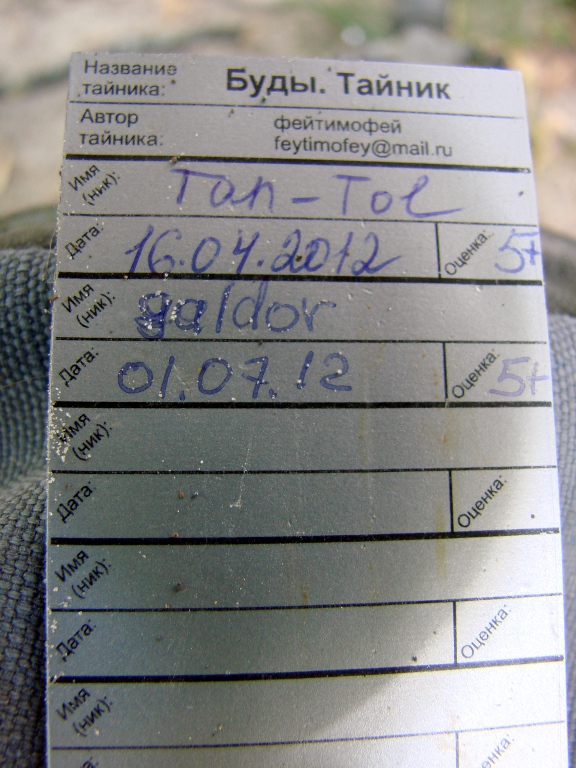 Название тайника: Буды. Тайник
Автор тайника: фейтимофей
feytimofey@mail.ru
Имя (ник): Tan-Tol
Дата: 16.04.2012 Оценка: 5+
Имя (ник): galdor
Дата: 01.07.12 Оценка: 5+
Имя (ник):
Дата: Оценка:
Имя (ник):
Дата: Оценка:
Имя (ник):